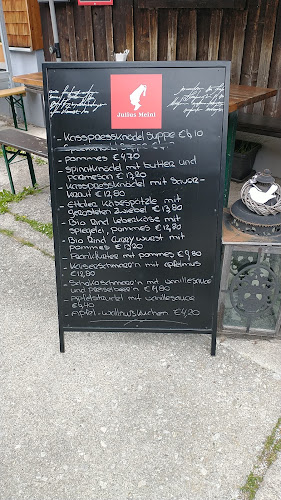 Julius Meinl
- Kasspressknödel Suppe €6,10
- Pommes €4,70
- Spinatknödel mit butter und
parmesan €13,80
- Kasspressknödel mit Sauer-
kraut €12,80
- Ettaler Käsespätzle mit
gerösteten Zwiebel €13,80
- Bio Rind Leberkäse mit
spiegelei, Pommes €13,80
- Bio Rind Currywurst mit
Pommes €13,20
- Frankfurter mit Pommes €9,80
- Kaiserschmarr'n mit apfelmus
€12,80
- Schokoschmarr'n mit vanillesauce
und Preiselbeer'n €9,80
- Apfelstrudel mit vanillesauce
€6,40
- Apfel-Walnusskuchen €4,20